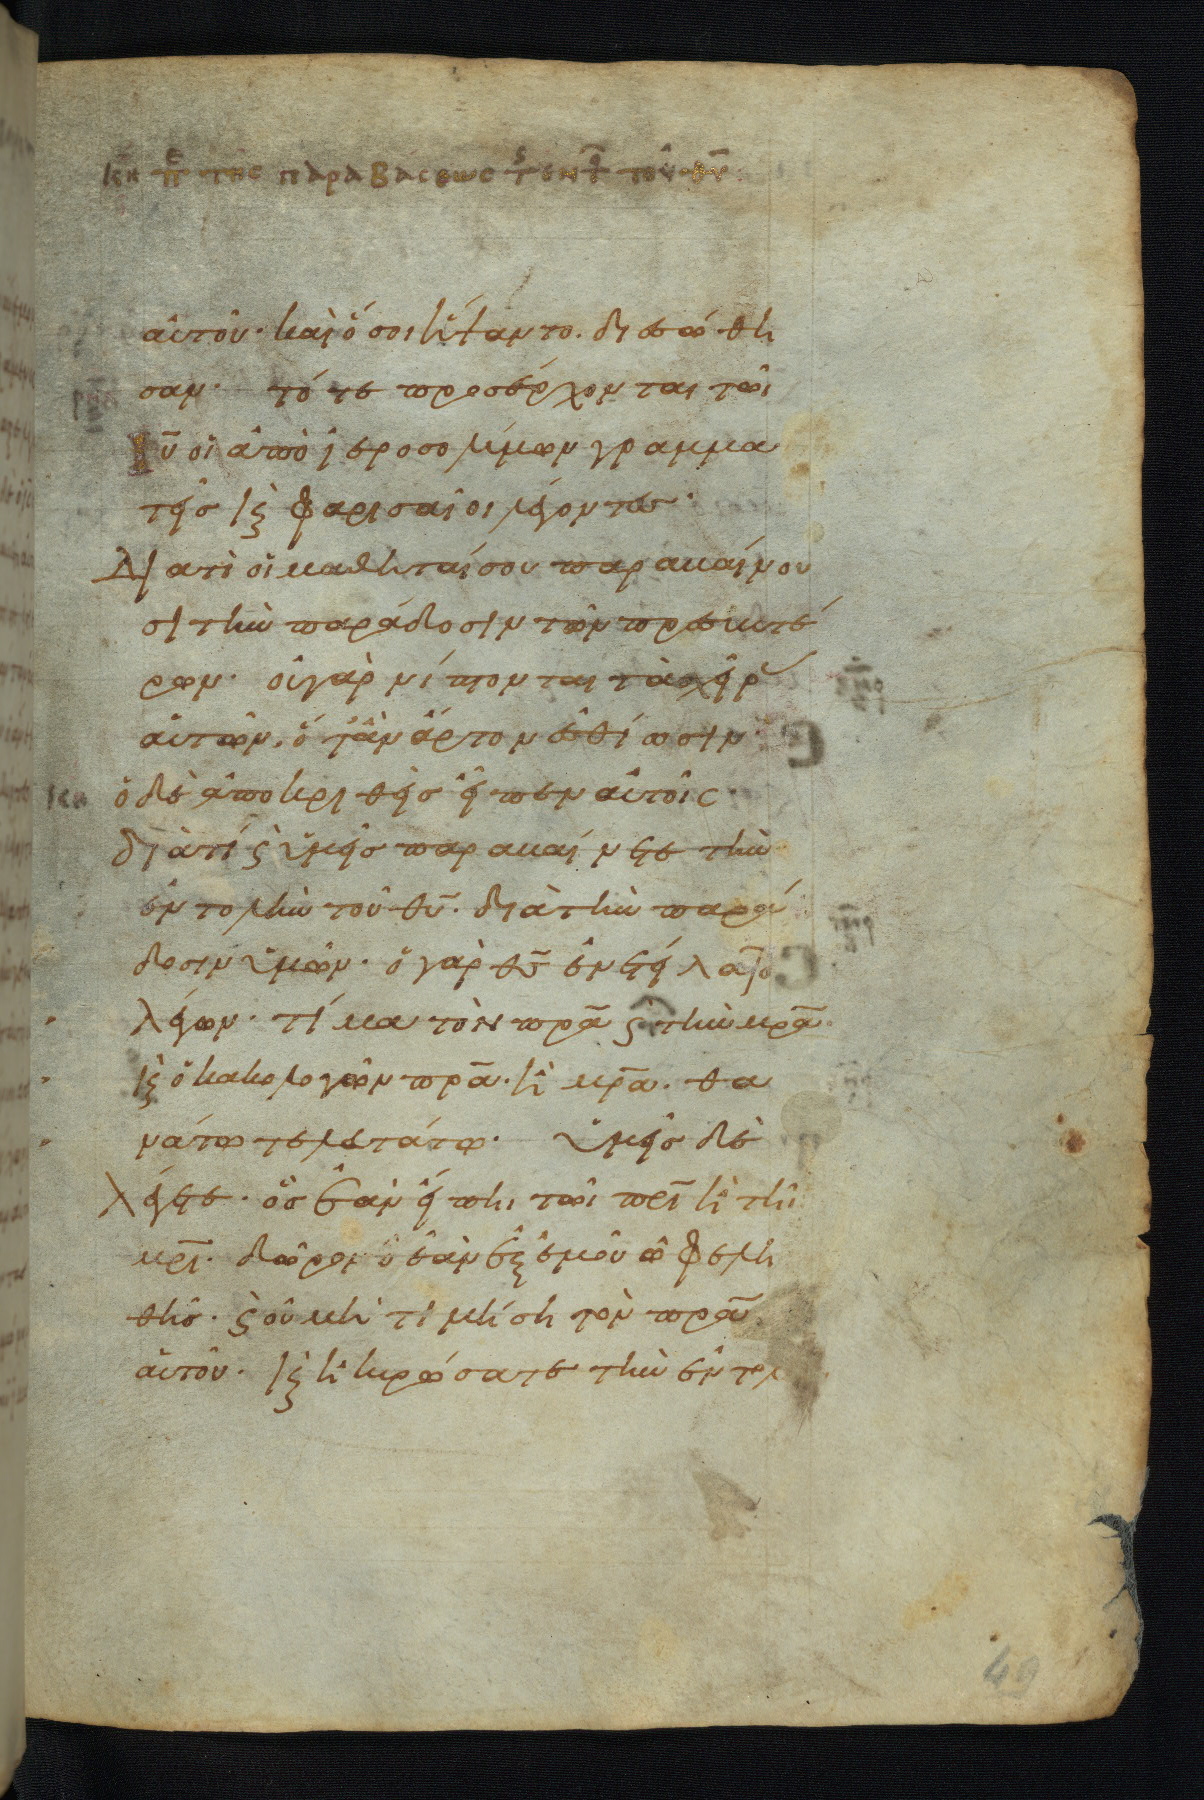 κη πε της παραβασεως τ εντ του θυ
αὐτοῦ· καὶ ὅσοι ἥψαντο. διεσώθη
σαν· τότε προσέρχονται τῶι
Ιῦ οἱ ἀπὸ ἱεροσολύμων γραμμα
τεῖσ κὶ φαρισαῖοι λέγοντεσ·
Διατὶ οἱ μαθηταί σου παραβαίνου
σι τὴν παράδοσιν τῶν πρεσβυτέ
ρων· οὐ γὰρ νίπτονται τὰσ χεῖρ
αὐτῶν. ὅτἂν ἄρτον ἐσθίωσιν·
κη ὁ δὲ ἀποκριθεὶσ εἶπεν αὐτοῖς·
διὰτί ϛ ὑμεῖσ παραβαίνετε τὴν
ἐντολὴν τοῦ θῦ. διὰ τὴν παρά
δοσιν ὑμῶν· ὁ γὰρ θσ ἐνετείλατο
λέγων· τίμα τὸν πρα ϛ τὴν μρα·
κὶ ὁ κακολογῶν πρα· ἢ μρα. θα
νάτω τελευτάτω· ὑμεῖσ δὲ
λέγετε· ὃσ ἐὰν εἴπηι τῶι πρι ἢ τῆ
μρι· δῶρον ὃ ἐὰν ἐξ ἐμοῦ ὠφελη
θῆσ· ϛ οὐ μὴ τιμήση τὸν πρα
αὐτοῦ· κὶ ἠκυρώσατε τὴν ἐντολ
49